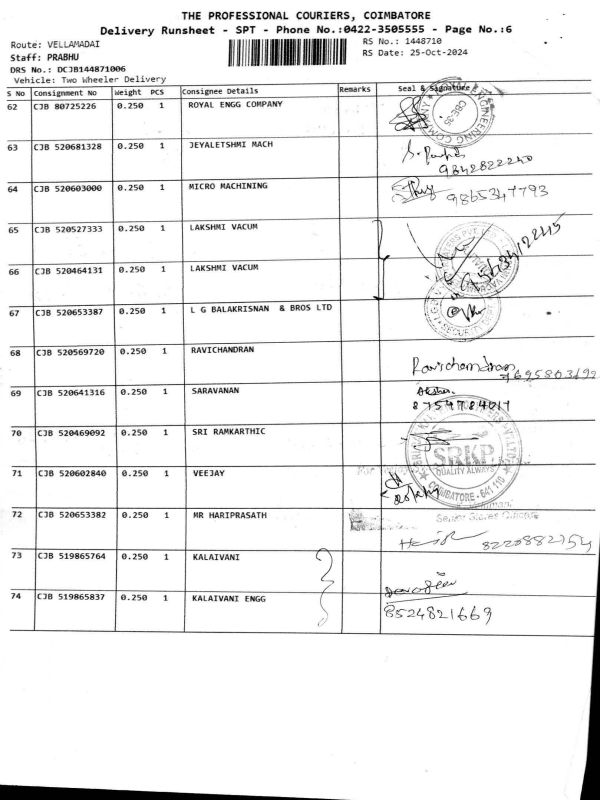 THE PROFESSIONAL COURIERS, COIMBATORE
Delivery Runsheet - SPT - Phone No.:0422-3505555 - Page No.:6
Route: VELLAMADAI
RS No.: 1448710
Staff: PRABHU
RS Date: 25-Oct-2024
DRS No.: DCJB144871006
Vehicle: Two Wheeler Delivery
S No Consignment No Weight PCS Consignee Details Remarks Seal & Signature
62 CJB 80725226 0.250 1 ROYAL ENGG COMPANY
63 CJB 520681328 0.250 1 JEYALETSHMI MACH
9842822240
64 CJB 520603000 0.250 1 MICRO MACHINING 9865347793
65 CJB 520527333 0.250 1 LAKSHMI VACUM
66 CJB 520464131 0.250 1 LAKSHMI VACUM
67 CJB 520653387 0.250 1 L G BALAKRISNAN & BROS LTD
68 CJB 520569720 0.250 1 RAVICHANDRAN
Ravichandran
69 CJB 520641316 0.250 1 SARAVANAN
8754784017
70 CJB 520469092 0.250 1 SRI RAMKARTHIC
SRKP
QUALITY ALWAYS
COIMBATORE - 641 110
71 CJB 520602840 0.250 1 VEEJAY
72 CJB 520653382 0.250 1 MR HARIPRASATH
Senior Stores Officer
8220882154
73 CJB 519865764 0.250 1 KALAIVANI
74 CJB 519865837 0.250 1 KALAIVANI ENGG
8524821669